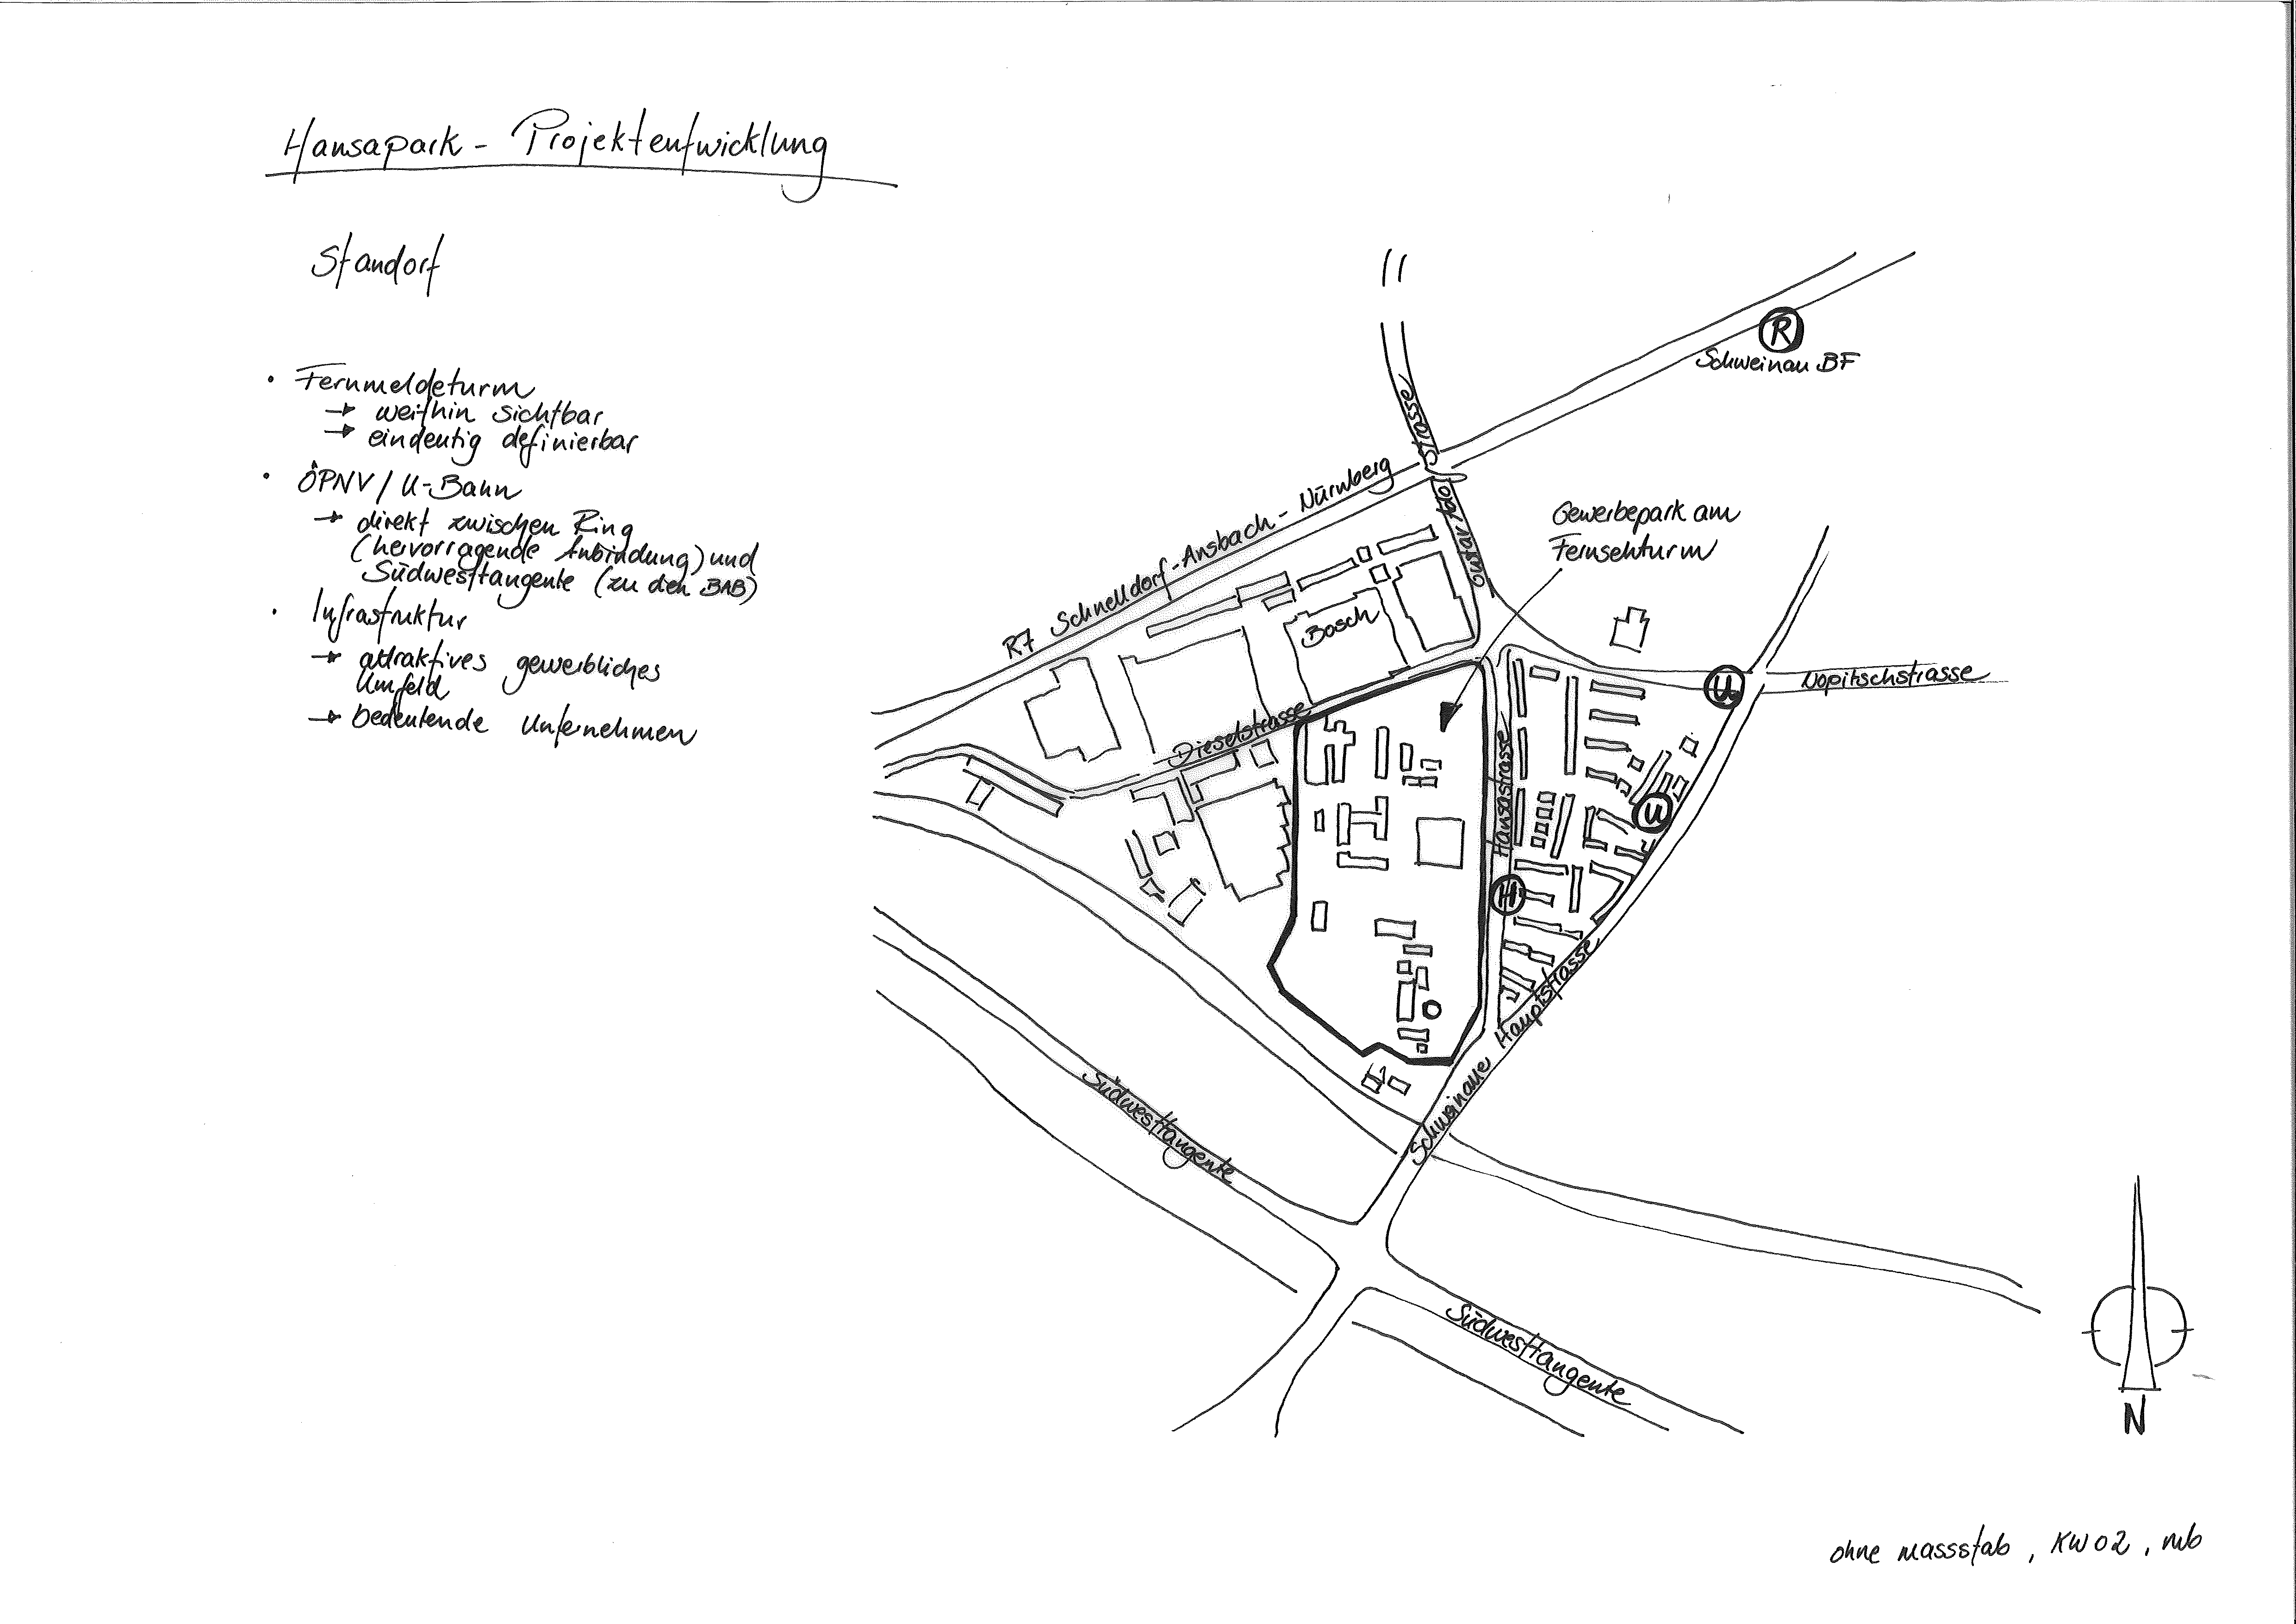 Hansapark - Projektentwicklung
Standort
• Fernmeldeturm
→ weithin sichtbar
→ eindeutig definierbar
• ÖPNV / U-Bahn
→ direkt zwischen Ring
(hervorragende Anbindung) und
Südwesttangente (zu den BAB)
• Infrastruktur
→ attraktives gewerbliches
Umfeld
→ bedeutende Unternehmen
R
Schweinau BF
Gustav Adolf Strasse
R7 Schnelldorf-Ansbach-Nürnberg
Gewerbepark am
Fernsehturm
Bosch
U
Nopitschstrasse
Dieselstrasse
Hansastrasse
U
H
Schweinauer Hauptstrasse
Südwesttangente
Südwesttangente
N
ohne massstab, KW02, mb